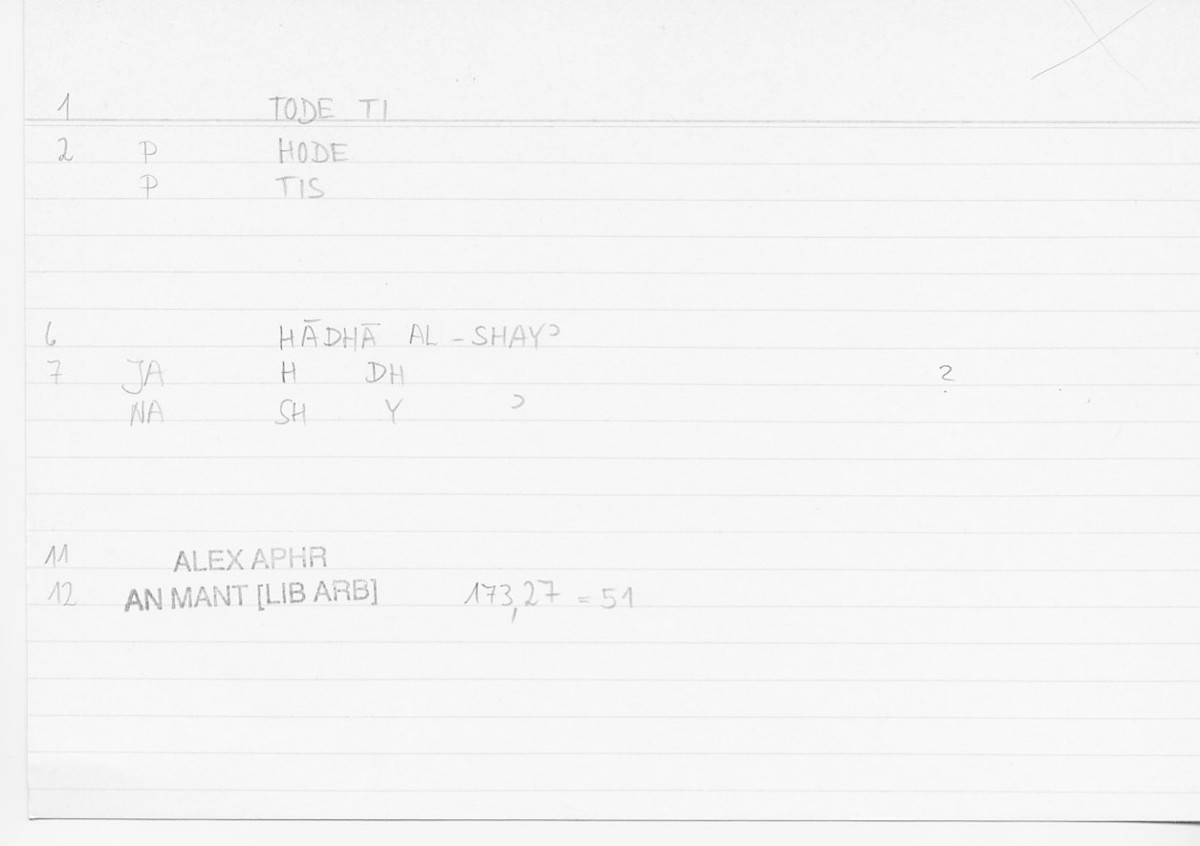 1 TODE TI
2 P HODE
P TIS
6 HĀDHĀ AL-SHAYʾ
7 JA H DH ?
NA SH Y ʾ
11 ALEX APHR
12 AN MANT [LIB ARB] 173,27 = 51